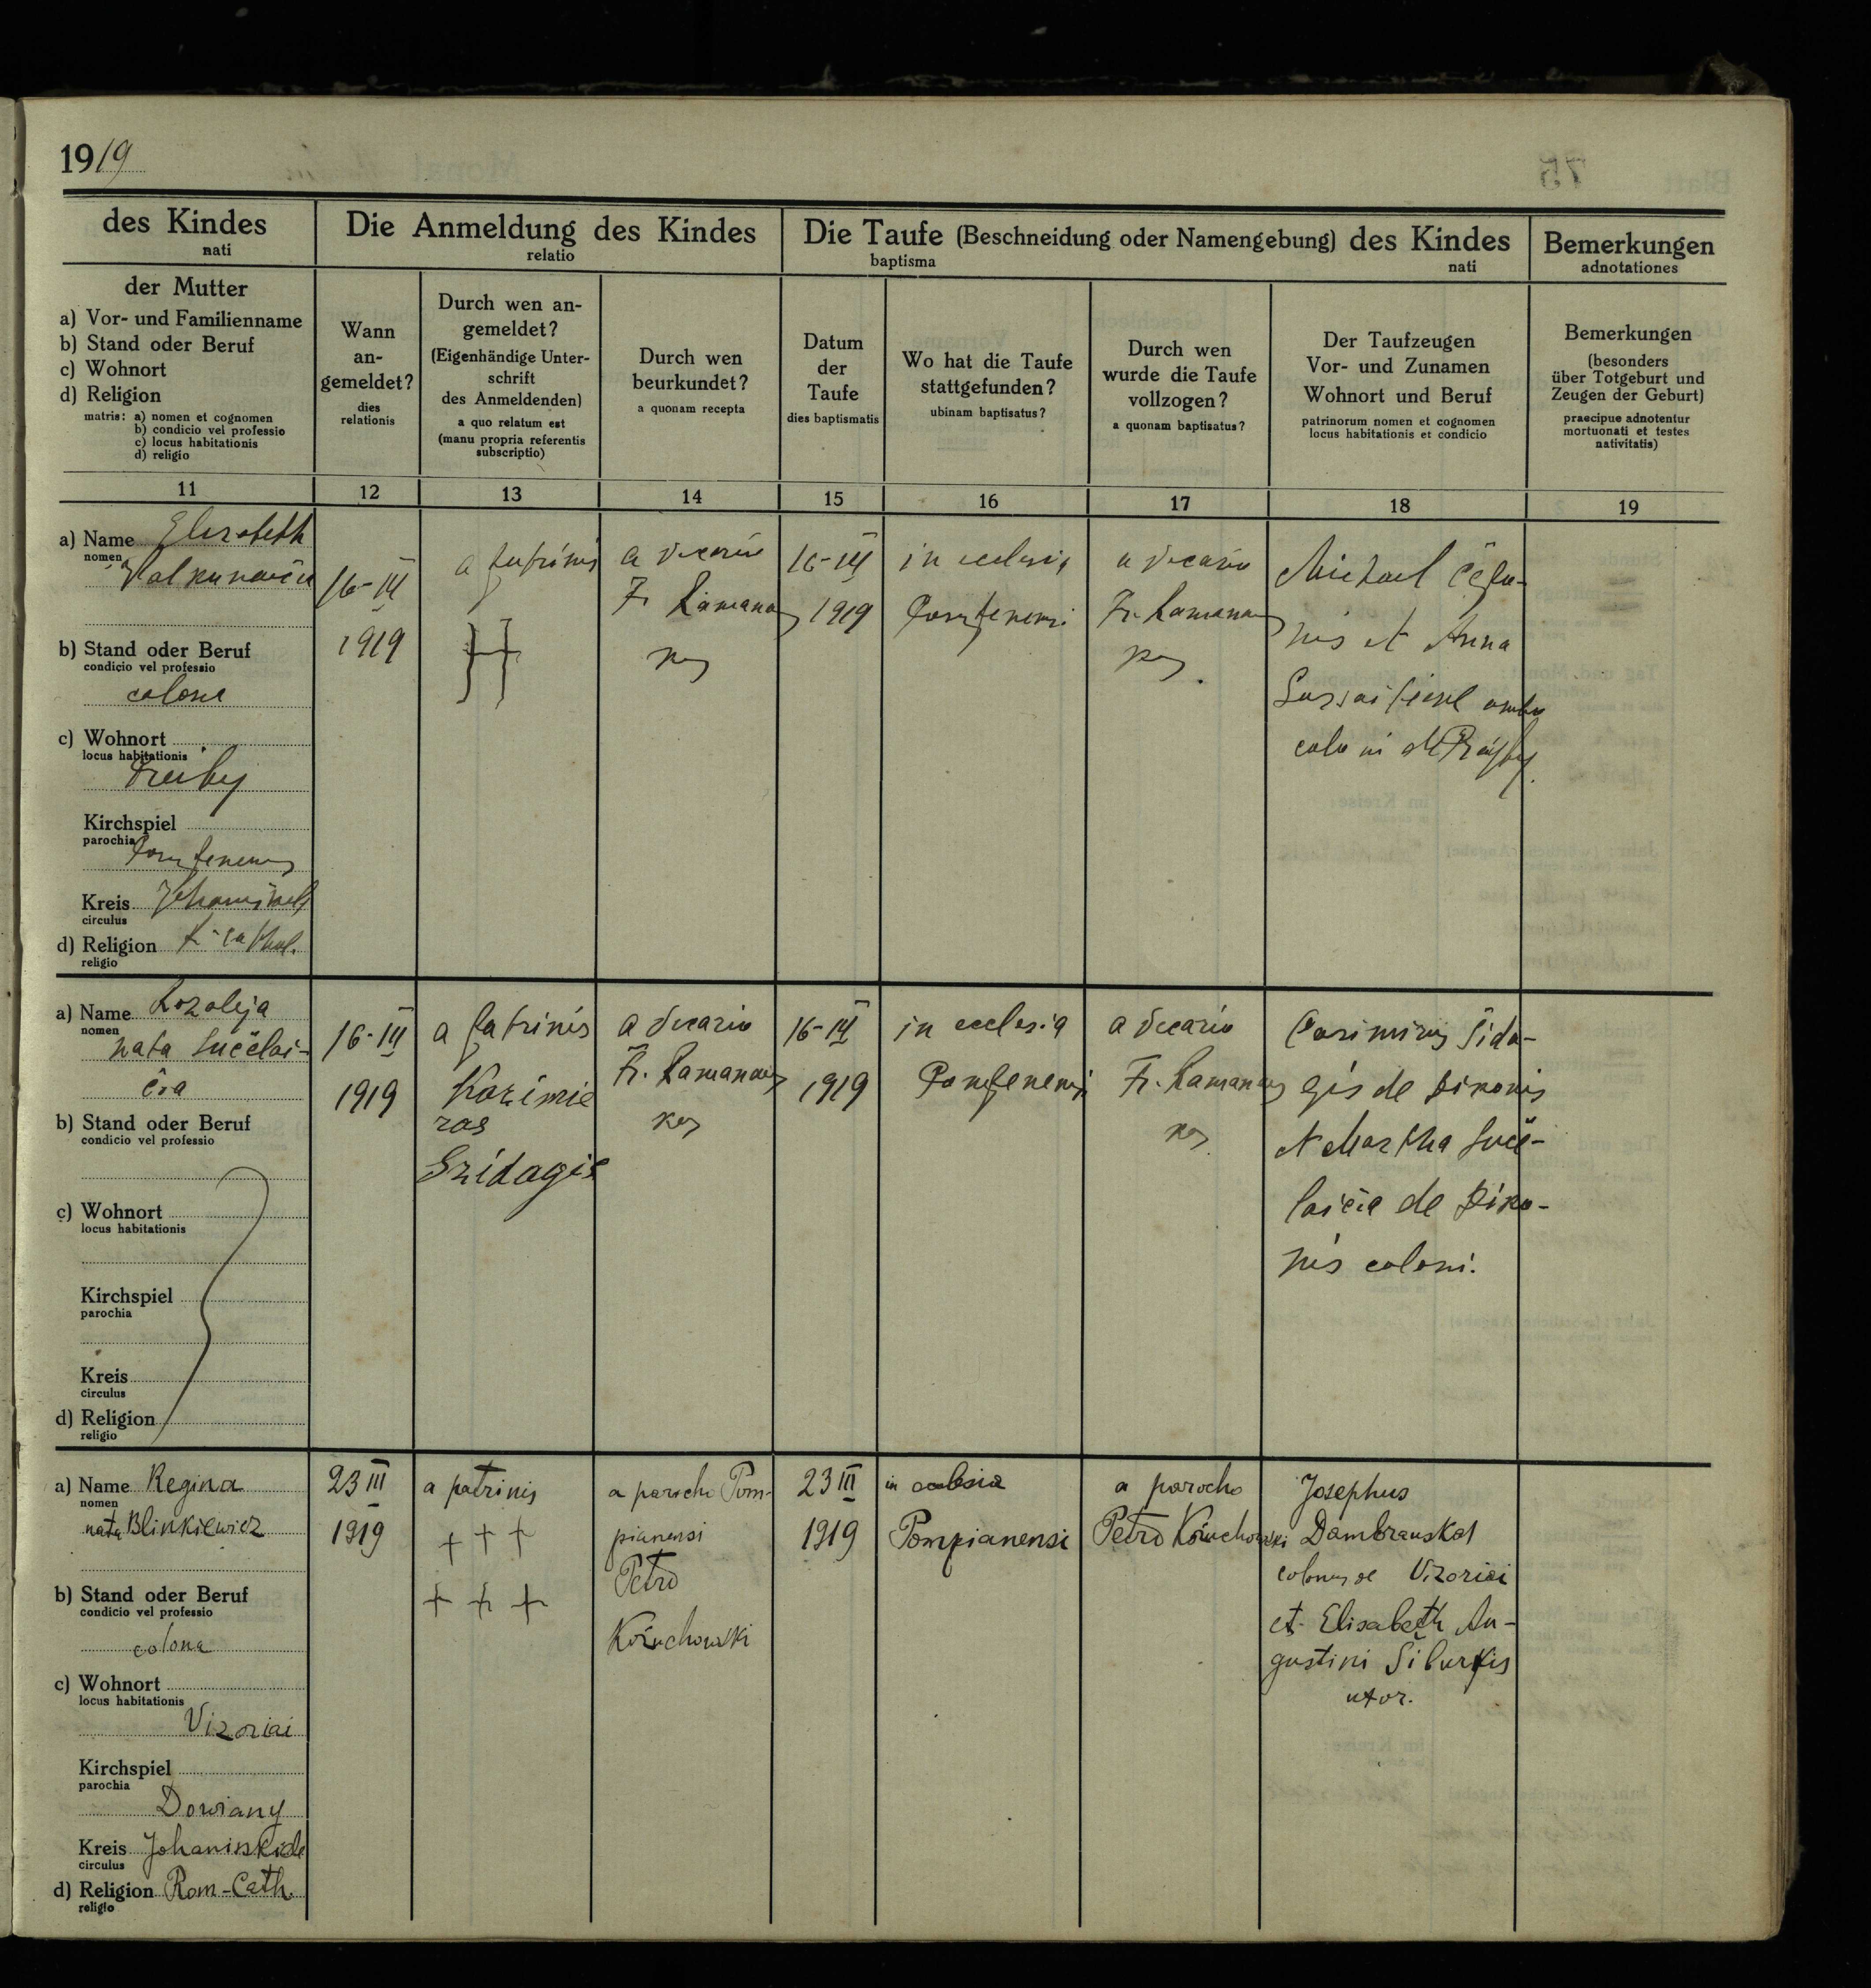 1919
des Kindes
nati
Die Anmeldung des Kindes
relatio
Die Taufe (Beschneidung oder Namengebung) des Kindes
baptisma nati
Bemerkungen
adnotationes
der Mutter
a) Vor- und Familienname
b) Stand oder Beruf
c) Wohnort
d) Religion
matris: a) nomen et cognomen
b) condicio vel professio
c) locus habitationis
d) religio
Wann
an-
gemeldet?
dies
relationis
Durch wen an-
gemeldet?
(Eigenhändige Unter-
schrift
des Anmeldenden)
a quo relatum est
(manu propria referentis
subscriptio)
Durch wen
beurkundet?
a quonam recepta
Datum
der
Taufe
dies baptismatis
Wo hat die Taufe
stattgefunden?
ubinam baptisatus?
Durch wen
wurde die Taufe
vollzogen?
a quonam baptisatus?
Der Taufzeugen
Vor- und Zunamen
Wohnort und Beruf
patrinorum nomen et cognomen
locus habitationis et condicio
Bemerkungen
(besonders
über Totgeburt und
Zeugen der Geburt)
praecipue adnotentur
mortuonati et testes
nativitatis)
11 12 13 14 15 16 17 18 19
a) Name Elizabeth
nomen
b) Stand oder Beruf
condicio vel professio
colona
c) Wohnort
locus habitationis
Kirchspiel
parochia
Kreis
circulus
d) Religion r-cathol.
religio
16-III
1919
a patrinis
a vicario
Fr. Ramanaus
kas
16-III
1919
in ecclesia
a vicario
Fr. Ramanaus
kas.
Michael
nis et Anna
ambo
coloni de
a) Name Rozalija
nomen
nata Sučelai-
čia
b) Stand oder Beruf
condicio vel professio
c) Wohnort
locus habitationis
Kirchspiel
parochia
Kreis
circulus
d) Religion
religio
16-III
1919
a patrinis
Kazimie
ras
Szidagis
a vicario
Fr. Ramanaus
kas
16-III
1919
in ecclesia
Pompenensi
a vicario
Fr. Ramanaus
kas.
Casimirus Šida-
gis de
et Martha Suče-
laičia de
nis coloni.
a) Name Regina
nomen
nata Blinkiewicz
b) Stand oder Beruf
condicio vel professio
colona
c) Wohnort
locus habitationis
Vizoriai
Kirchspiel
parochia
Dowiany
Kreis Johaniskiele
circulus
d) Religion Rom-Cath.
religio
23 III
1919
a patrinis
+ + +
+ + +
a parocho Pom-
pianensi
Petro
Kožuchowski
23 III
1919
in ecclesia
Pompianensi
a parocho
Petro Kožuchowski
Josephus
Dambrauskas
colonus de Vizoriai
et Elisabeth Au-
gustini
uxor.